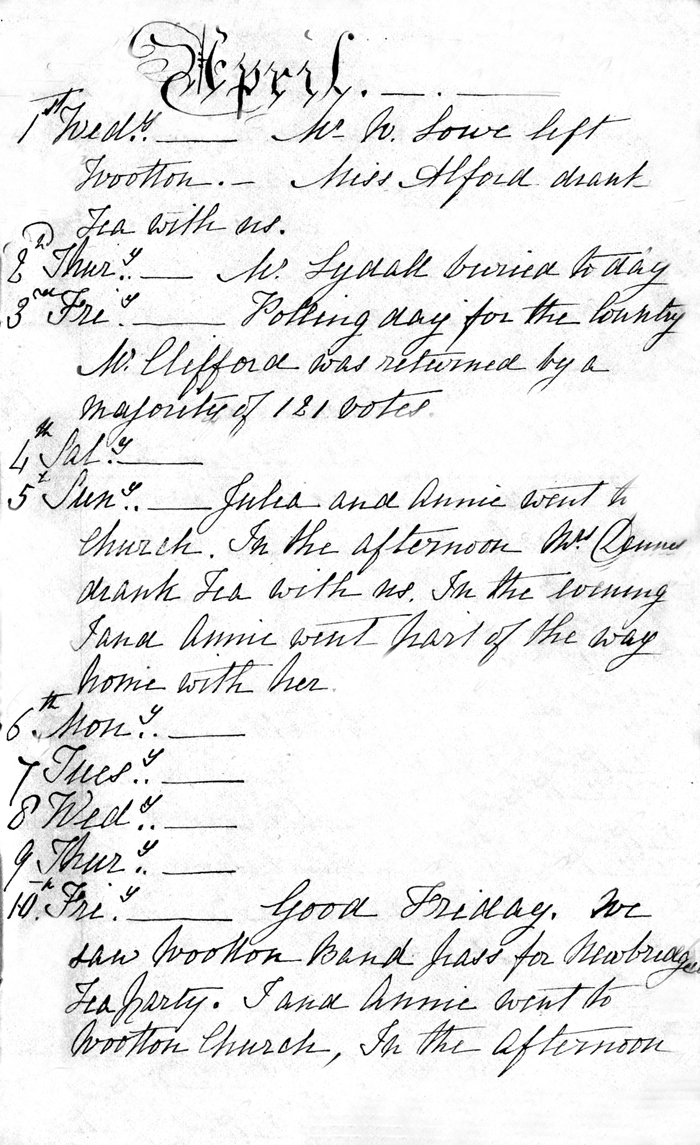 April. — . —
1st Wedy. — Mr W. Lowe left
Wootton. — Miss Alford drank
Tea with us.
2nd Thury. — Mr. Lydall buried to day
3rd Friy. — Polling day for the County
Mr. Clifford was returned by a
majority of 121 votes.
4th Saty. —
5th Suny. — Julia and Annie went to
Church. In the afternoon Mrs
drank Tea with us. In the evening
I and Annie went part of the way
home with her
6th. Mony. —
7 Tuesy. —
8 Wedy. —
9 Thury. —
10th. Friy. — Good Friday. We
saw Wootton Band pass for Newbridge
Tea party. I and Annie went to
Wootton Church, In the afternoon